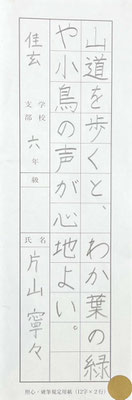 山道を歩くと、わか葉の緑
や小鳥の声が心地よい。
学校
支部
佳玄
六年
級
氏名
片山寧々
硬心・硬筆規定用紙(12字×2行)